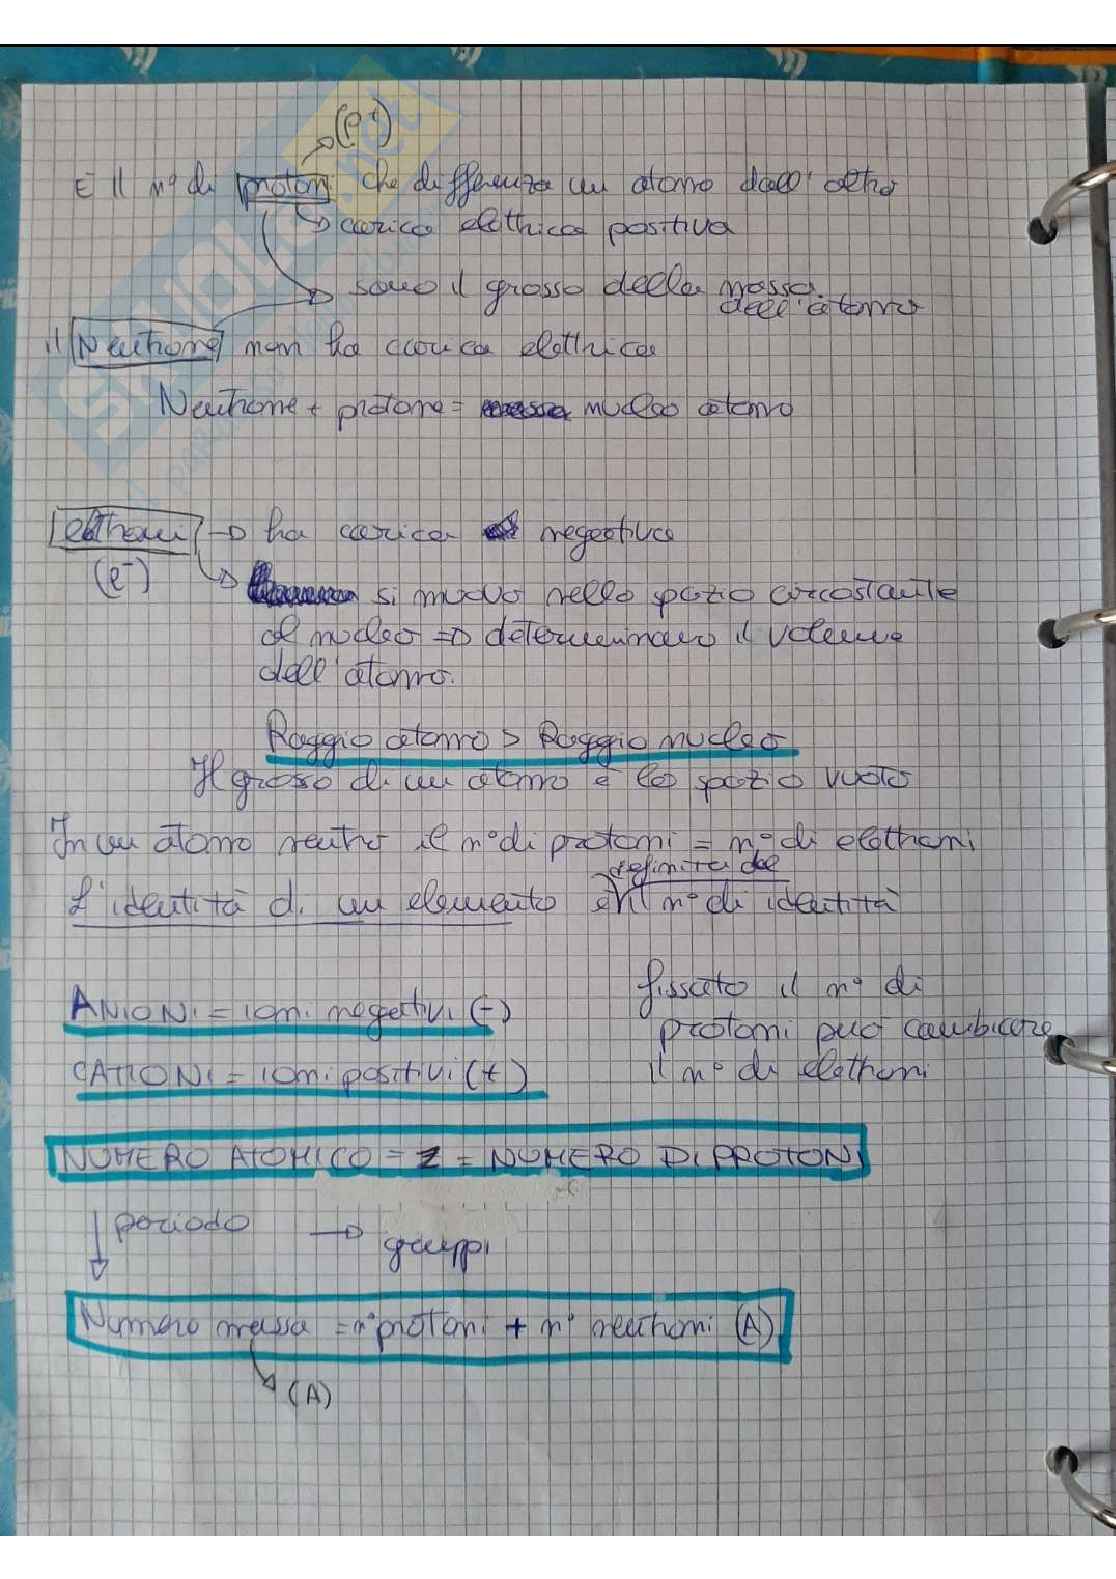 (p+)
È il n° di protoni che differenza un atomo dall'altro
carica elettrica positiva
sono il grosso della massa
dell'atomo
il Neutrone non ha carica elettrica
Neutrone + protone = nucleo atomo
elettroni → ha carica negativa
(e-)
si muovo nello spazio circostante
al nucleo => determinano il volume
dell'atomo.
Raggio atomo > Raggio nucleo
Il grosso di un atomo è lo spazio vuoto
In un atomo neutro il n° di protoni = n° di elettroni
definita dal
L'identità di un elemento è il n° di identità
ANIONI = ioni negativi (-)
fissato il n° di
protoni può cambiare
il n° di elettroni
CATIONI = ioni positivi (+)
NUMERO ATOMICO = Z = NUMERO DI PROTONI
↓ periodo → gruppi
Numero massa = n° protoni + n° neutroni (A)
(A)